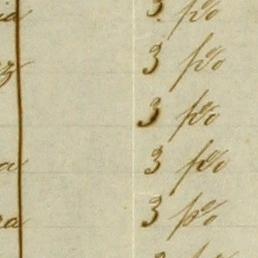 3 p%
3 p%
3 p%
3 p%
3 p%